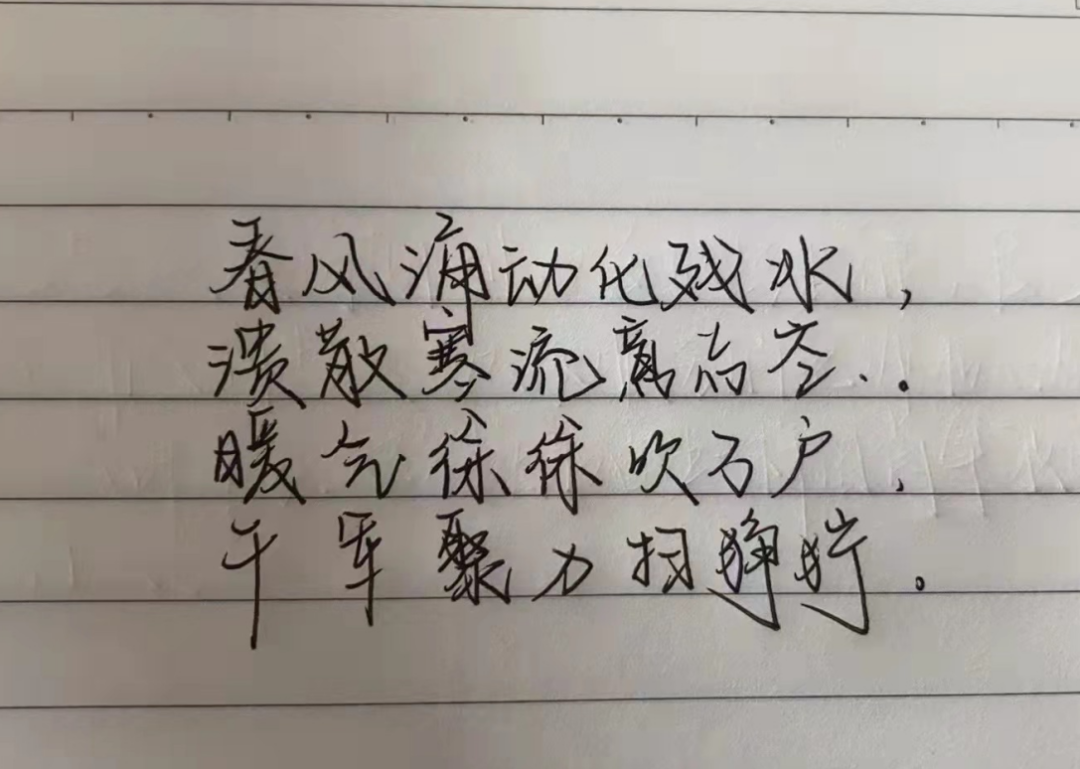 春风涌动化残冰，
溃散寒流离高空．．
暖气徐徐吹万户，
千军聚力扫狰狞。